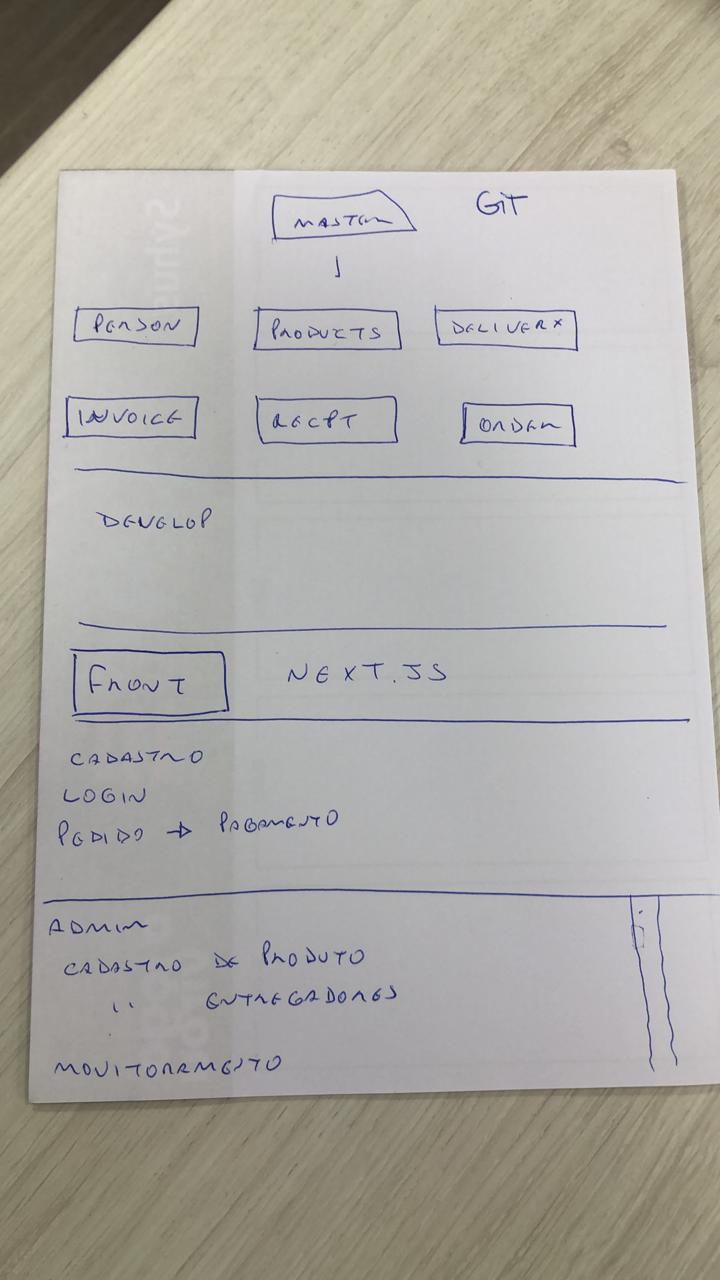 MASTER GIT
PERSON PRODUCTS DELIVERY
INVOICE RECPT ORDER
DEVELOP
FRONT NEXT.JS
CADASTRO
LOGIN
PEDIDO → PAGAMENTO
ADMIN
CADASTRO DE PRODUTO
" ENTREGADORES
MONITORAMENTO